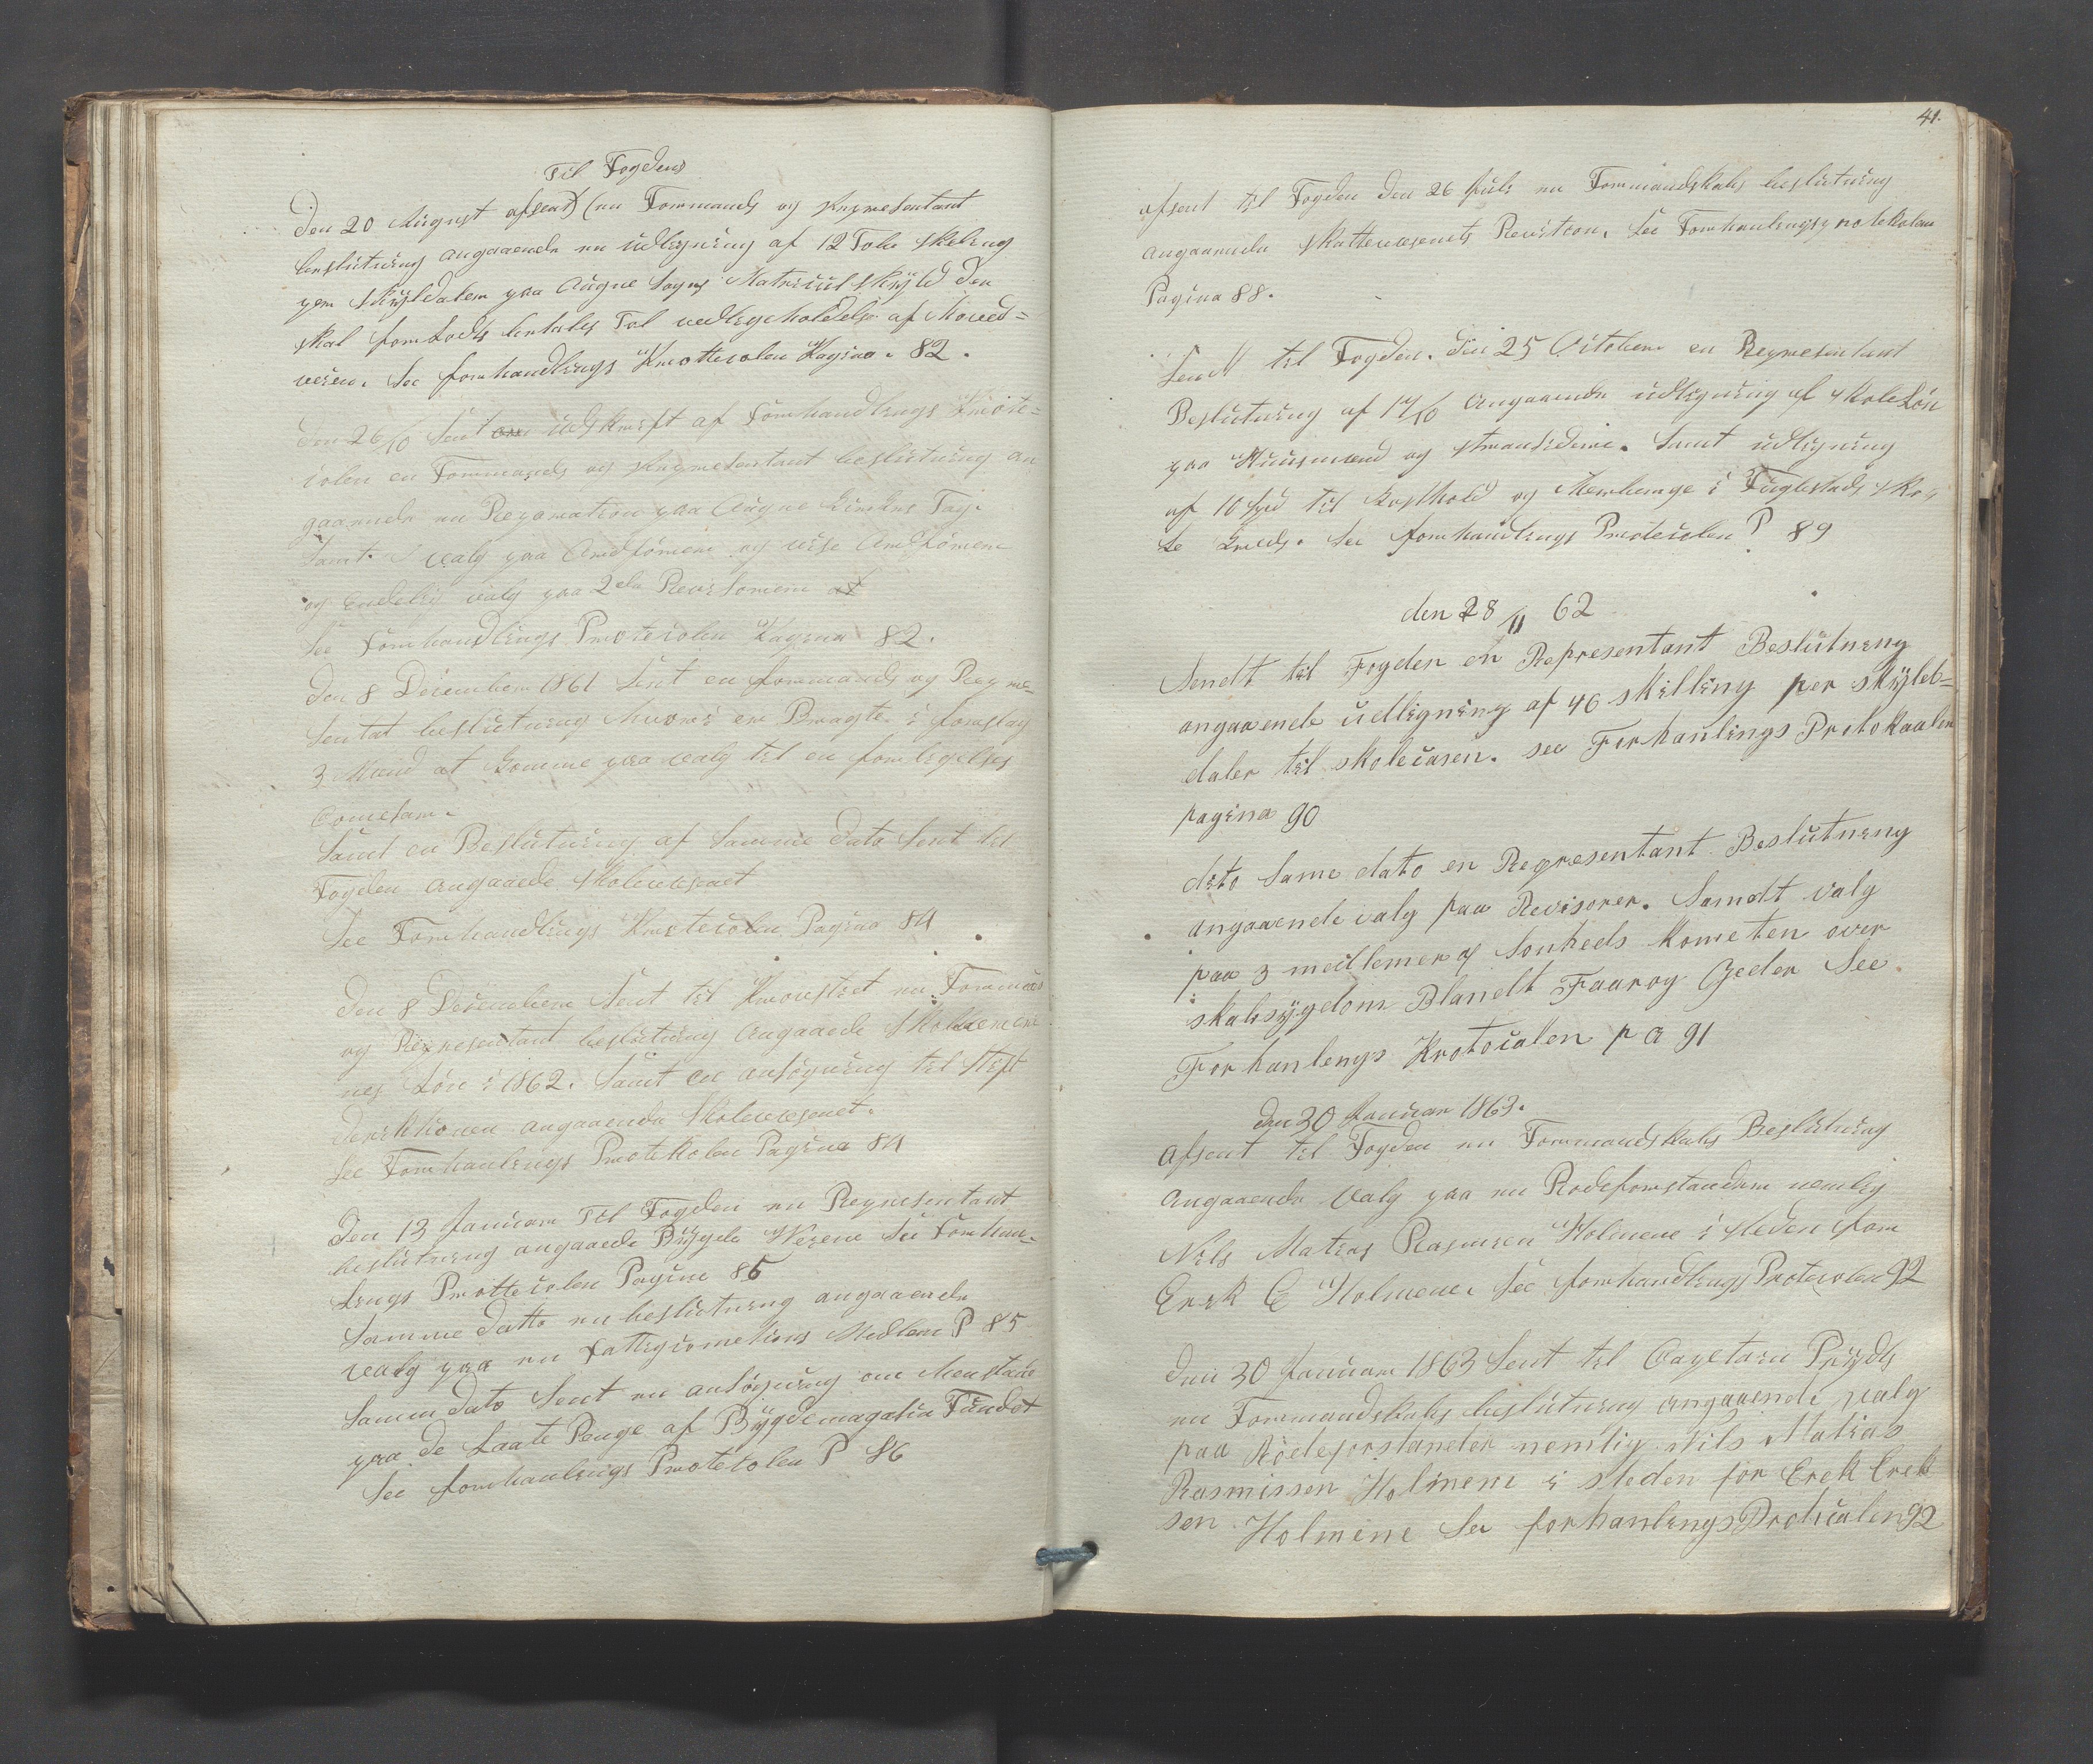 Til Fogden
Den 20 August afsent (en Formands og Representant
beslutning angaaende en udligning af 12 Tolv skeling
per skyldaler paa Augne Sogns Matricul skyld der
skal forlods betales Til vedligeholdelse af Hoved=
veien. See forhandlings Protticolen Pagina. 82.
Den 26/10 Sent udskrift af Forhandlings Prote=
colen en Formands og Representant beslutning an
gaaende en Reparation paa Augne Kirkes Tag.
Samt valg paa Ordförere og vise Ordförere
og Endelig valg paa 2de Revisorere
See Forhandlings Protecolen Pagina 82.
Den 8 December 1861 Sent en formands og Repre-
sentat beslutning hvori er Bragte i forslag
3 Mænd at komme paa valg til en forligelses
Comesær.
Samt en Beslutning af Samme Dato Sent til
Fogden angaaede skolevesenet
See Forhandlings Protecolen Pagina 84
Den 8 December Sent til Provstiet en Formands
og Representant beslutning angaaede Skolelærer
nes Lön i 1862. Samt en ansögning til Stift
Derektionen angaaende Skolevesenet.
See Forhanlings Protekolen Pagina 84
Den 13 Januar Til Fogden en Representant
beslutning angaaede Bygde Veiene See Forhan-
lings Protticolen Pagina 85
Samme Datto en beslutning angaaende
valg paa en fattigcometions Medlem P 85
Samm Dato Sent en ansögning om Henstand
paa de Laante Penge af Bygdemagasin Fundet
See forhanlings Protecolen P 86
41.
afsent til Fogden den 26 Juli en Formandskabs beslutning
angaaende skattevesenets Revition. See Forhanlingsprotekolen
Pagina 88.
Sendt til Fogden. Den 25 October en Representant
Beslutning af 14/10 angaaende udligning af skolelön
paa Huusmænd og strandsidere. Samt udligning
af 10 spd til kosthold og Herberge i Fuglestads sko=
le kreds. See forhandlings Protecolen P 89
den 28/11 62
Sendt til Fogden en Representant Beslutning
angaaende udligning af 40 skilling per skyld=
daler til skolecasen. see Forhanlings Protokaalen
pagina 90
dito Same dato en Representant Beslutning
angaaende valg paa Revisorer. Samdt valg
paa 3 medlemer af Sonheds Kometen over
skabsygdom Blandt Faar og Geder See
Forhanlengs Protocallen p a 91
den 30 Januar 1863.
afsent til Fogden en Formandskabs Beslutning
angaaende valg paa en Rodeforstander nemlig
Nils Matias Rasmusen Holmene i steden for
Erek E Holmene. See forhandlings Protecolen 92
Den 30 Januar 1863 Sent til Capetain Pryds
en Formandskabs beslutning angaaende valg
paa Rodeforstander nemlig Nils Matias
Rasmissen Holmene i steden for Erek Erek
sen Holmene See forhanlengs Protocalen 92